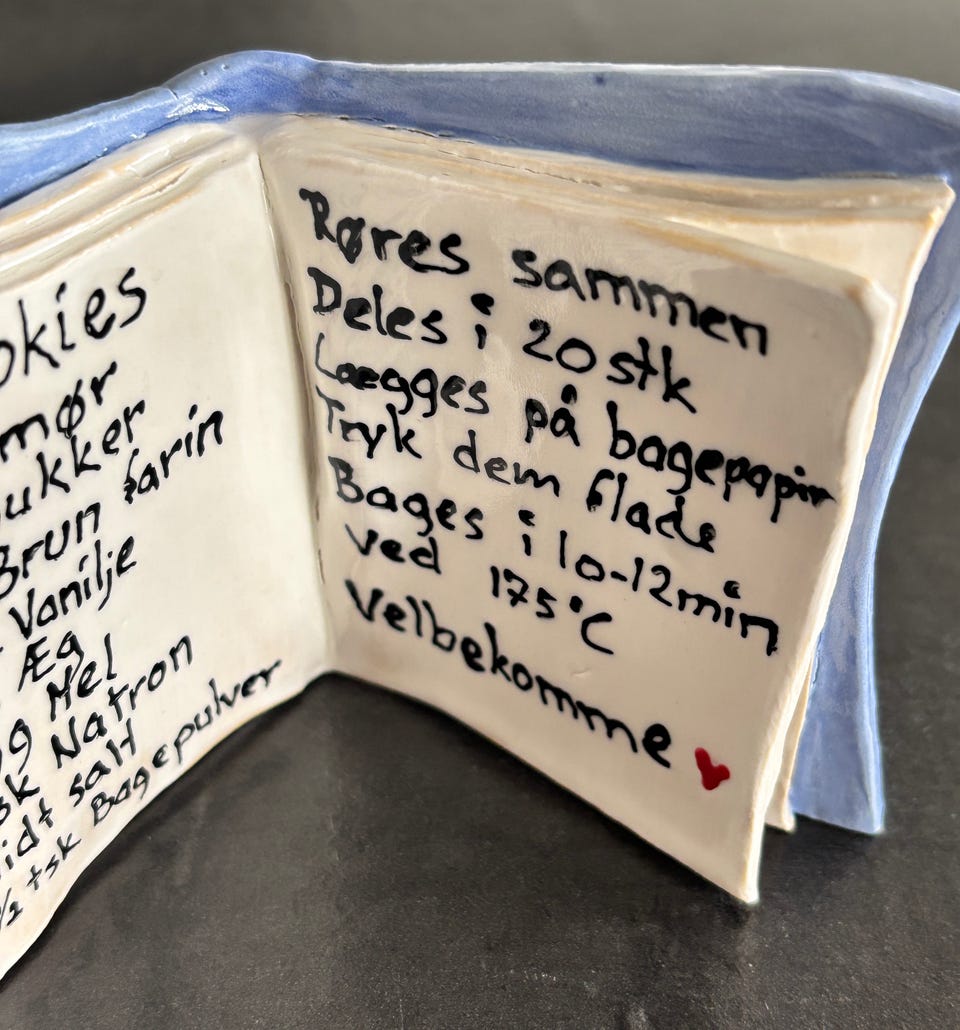 okies
mør
ukker
Brun farin
Vanilje
Æg
g Mel
sk Natron
idt salt
1/2 tsk Bagepulver
Røres sammen
Deles i 20 stk
Lægges på bagepapir
Tryk dem flade
Bages i 10-12 min
ved 175°C
Velbekomme